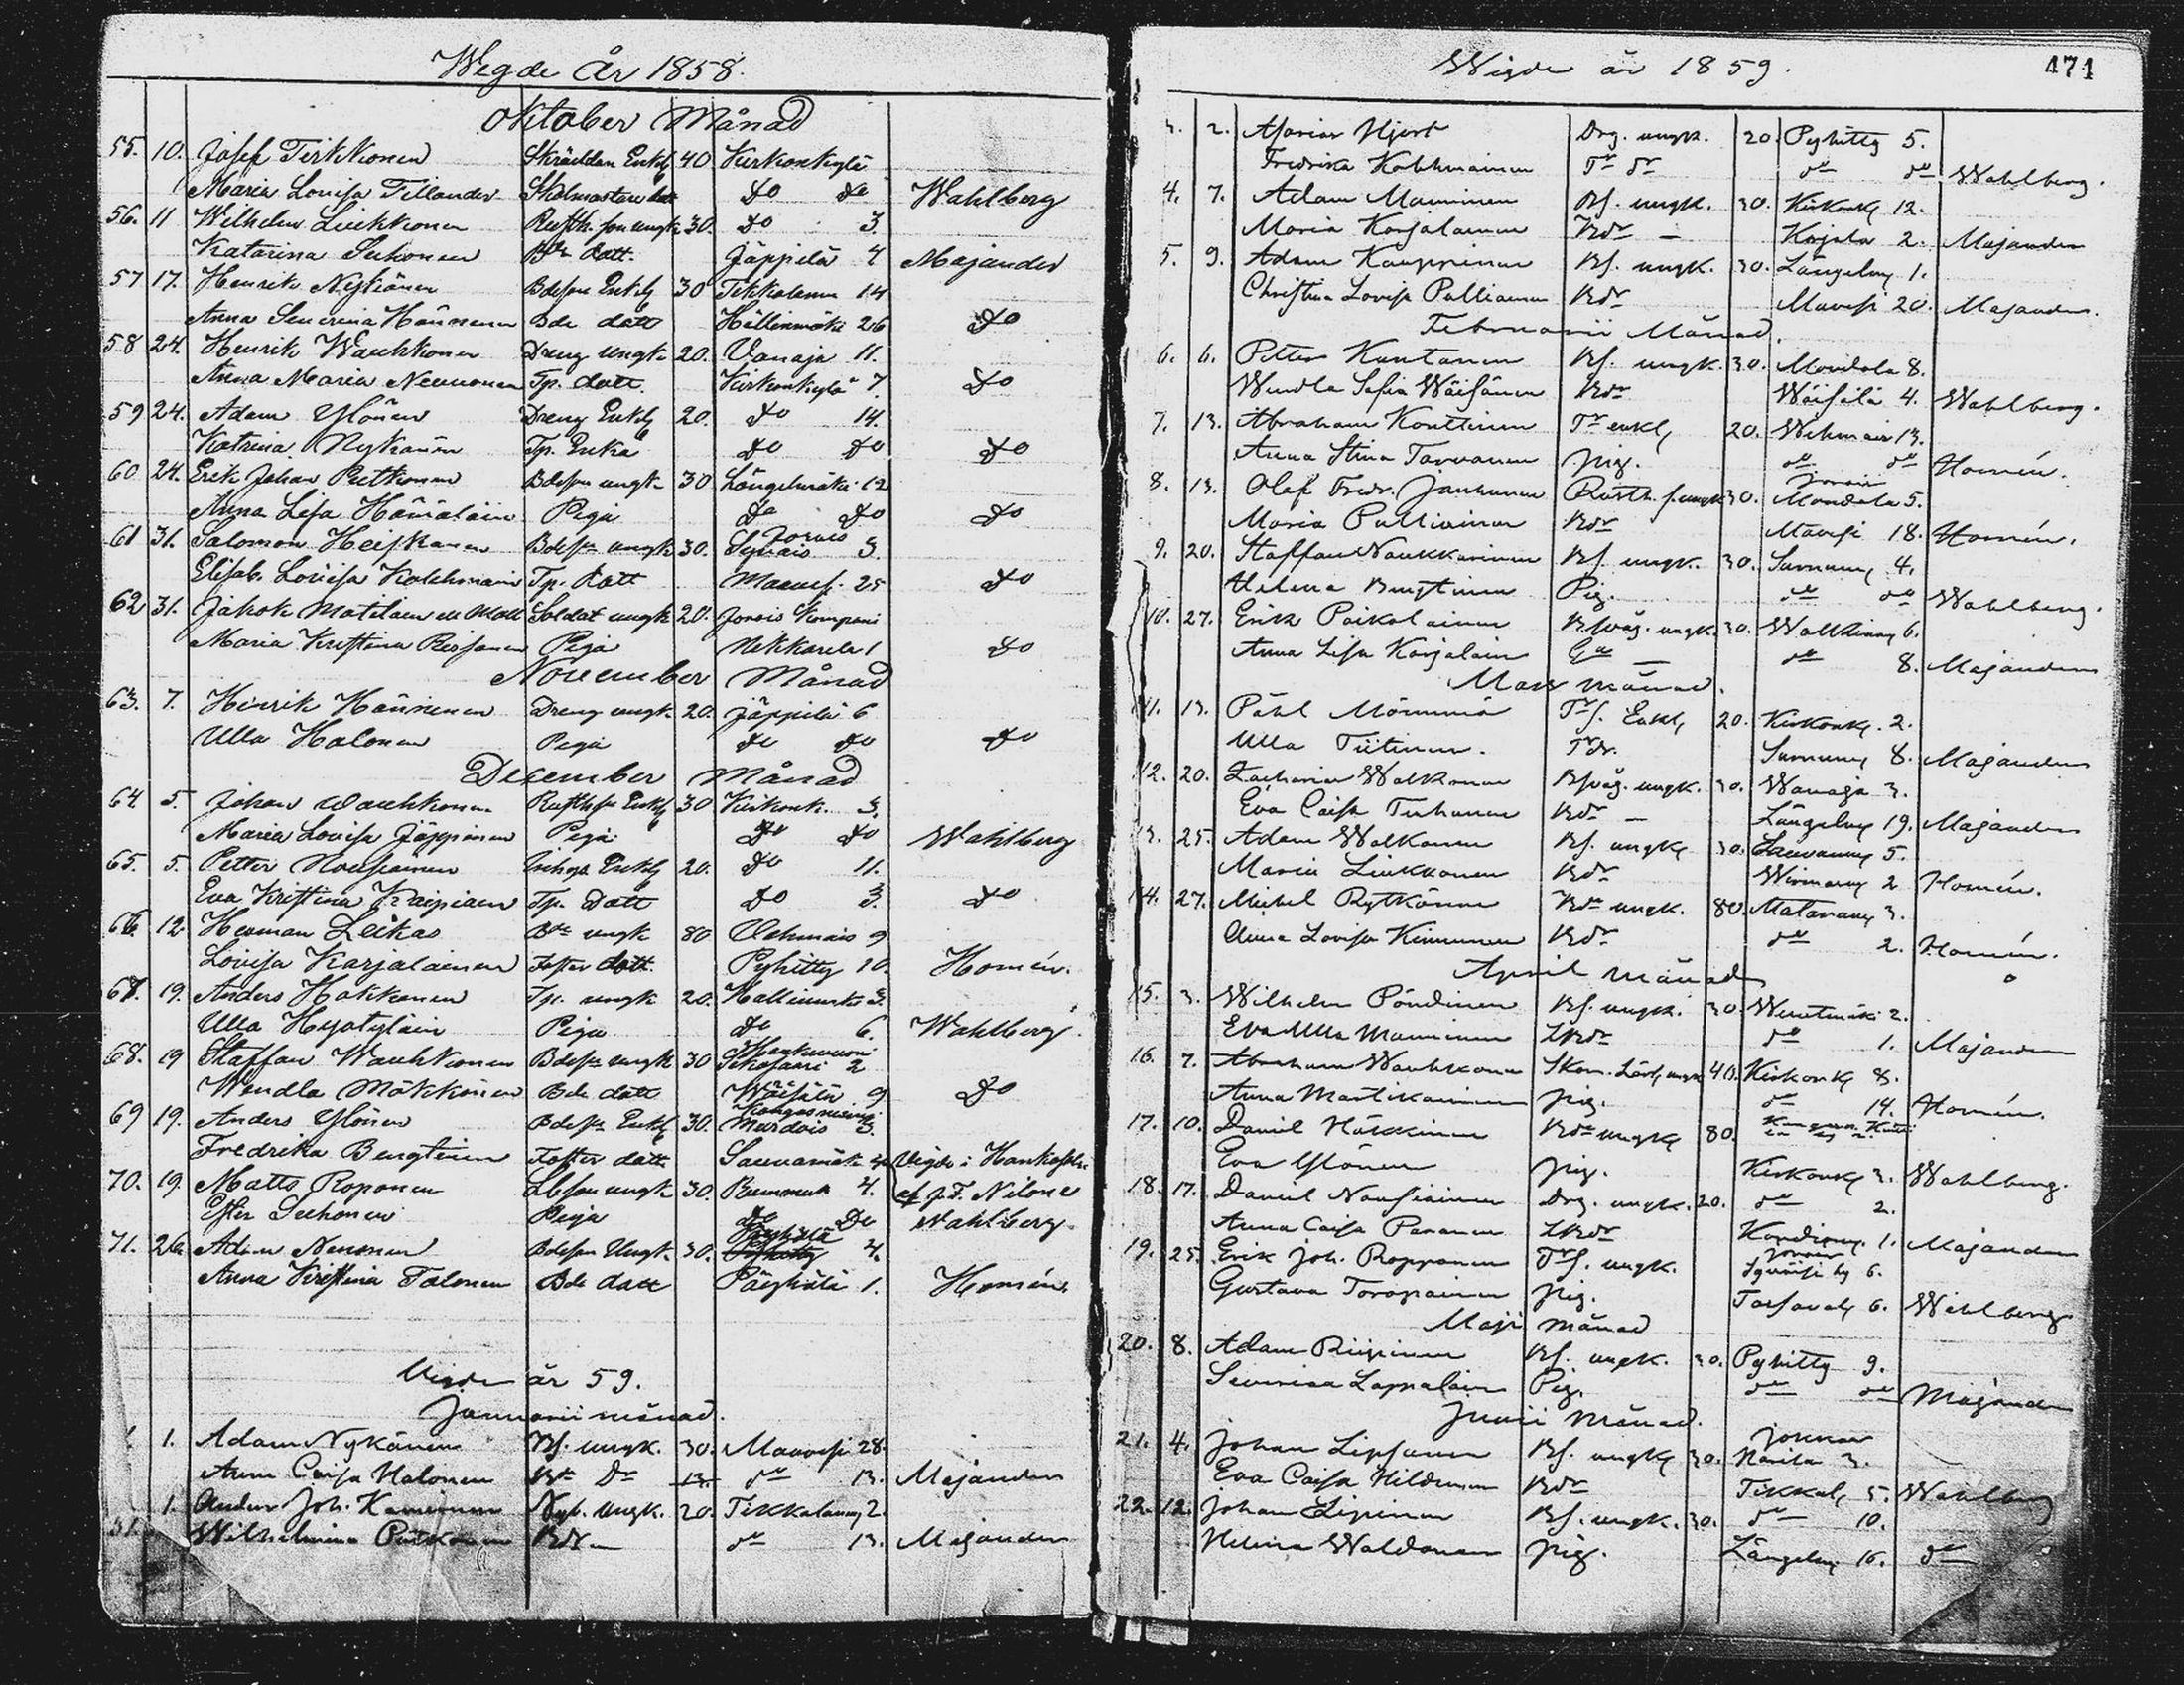 Wegde År 1858.
Oktober Månad
55. 10. Josef Tirkkonen Skräddar Enkl 40 Kirkonkylä
Maria Lovisa Tillander Skolmästare dott Do Do Wahlberg
56. 11 Wilhelm Liukkonen Rusth. son ungk 30. Do 3.
Katarina Seihonen Bde dott. Jäppilä 4 Majander
57 17. Henrik Nykänen Bdeson Enkl 30 Tikkalamä 14
Anna Severina Hänninen Bde dott Hällinmäki 26 Do
58 24. Henrik Wauhkonen Dreng ungk 20. Vanaja 11.
Anna Maria Neuvonen Tp. dott. Kirkonkylä 7. Do
59 24. Adam Ylönen Dreng Enkl 20. Do 14.
Katrina Nykänen Tp. Enka Do Do Do
60 24. Erik Johan Putkonen Bdeson ungk 30 Längelmäki 12
Anna Lisa Hämäläin Piga Do Do Do
61 31. Salomon Heiskanen Bdeson ungk 30. Jorois Syväis 3.
Elisab. Lovisa Kolehmain Tp. dott Mauvesi 25 Do
62 31. Jakob Matilain Soldat ungk 20. Jorois Kompani
Maria Kristina Reissonen Piga Nikkarila 1 Do
November Månad
63. 7. Henrik Hänninen Dreng ungk. 20. Jäppilä 6
Ulla Halonen Piga Do Do Do
December Månad
64 5. Johan Wauhkonen Rusthson Enkl 30 Kirkonk. 3.
Maria Lovisa Jäppinen Piga Do Do Wahlberg
65. 5. Petter Nousiainen Inhys Enkl 20. Do 11.
Eva Kristina Kaipiain Tp. Dott Do 3. Do
66. 12 Herman Leikas Bde ungk 80 Vehmais 9
Lovisa Karjalainen Foster dott. Pyhitty 10. Homén.
67. 19. Anders Hokkanen Tp. ungk 20. Hällinmäki 3.
Ulla Hyötyläin Piga Do 6. Wahlberg.
68. 19 Staffan Wauhkonen Bdeson ungk 30 Haukivuori 2
Wendla Mökkönen Bde dott Wäisälä 9 Do
69 19. Anders Ylönen Bdeson Enkl 30. Kangasniemi 3.
Fredrika Bengtinen Foster dott Saunamäki 4 Vigde i Hankasalmi
70. 19. Matts Roponen Lbson ungk 30. 4. af J. F. Nilone
Ester Seihonen Piga Do Do Wahlberg
71. 26. Adam Neuvonen Bdeson Ungk. 30. Päyhälä 4.
Anna Kristina Talonen Bde dott Päyhälä 1. Homén.
Vigde år 59.
Januarii månad.
1. Adam Nykänen Bs. ungk. 30. Mauvesi 28.
Anna Caisa Halonen Bde Dr 13. do 13. Majander
1. Anders Joh. Kaminen Nyb. ungk. 20. Tikkalamy 2.
Wilhelmina Putkonen Bdr do 13. Majander
Wigde år 1859. 471
3. 2. Maria Hjort Drg. ungk. 20. Pyhitty 5.
Fredrika Kolehmainen Tr dr do do Wahlberg.
4. 7. Adam Manninen Bs. ungk. 30. Kirkonk 12.
Maria Karjalainen Bdr Korjala 2. Majander
5. 9. Adam Kauppinen Bs. ungk. 30. Längelmy 1.
Christina Lovisa Pulliainen Bdr Mauvesi 20. Majander.
Februarii Månad.
6. 6. Petter Kuntonen Bs. ungk. 30. Montola 8.
Wendla Sofia Wäisänen Bdr Wäisälä 4. Wahlberg.
7. 13. Abraham Konttinen Tr enkl, 20. Wehmais 13.
Anna Stina Tarvanen pig. do do Homén.
8. 13. Olof Fredr. Janhunen Rusth. s. ungk 30. Jorois Mondola 5.
Maria Pulliainen Bdr Mauvesi 18. Homén.
9. 20. Staffan Naukkarinen Bs. ungk. 30. Surnumy 4.
Helena Bengtinen Pig. do do Wahlberg.
10. 27. Erik Poikolainen Bsvåg. ungk. 30. Walkiamy 6.
Anna Lisa Karjalain Ga do 8. Majander
Mars månad.
11. 13. Påhl Mömmö Trs. Enkl, 20. Kirkonk. 2.
Ulla Tiitinen. Trdr. Surnumy 8. Majander
12. 20. Zacharias Walkonen Bsvåg. ungk. 30. Wanaja 3.
Eva Caisa Turhanen Bdr Längelmy 19. Majander
13. 25. Adam Walkonen Bs. ungk 30. 5.
Maria Liukkonen Bdr Wirmamy 2 Homén.
14. 27. Mickel Rytkönen Bde ungk. 80. Mataramy 3.
Anna Lovisa Kinnunen Bdr do 2. Homén.
April månad
15. 3. Wilhelm Pöndinen Bs. ungk. 30. Wenetmäki 2.
Eva Ulla Manninen LBdr do 1. Majander
16. 7. Abraham Wauhkonen Skom. Lärl, ungk 40. Kirkonk 8.
Anna Martikainen pig. do 14. Homén.
17. 10. Daniel Häkkinen Bde ungk 80.
Eva Ylönen pig. Kirkonk 3. Wahlberg.
18. 17. Daniel Nousiainen Drg. ungk. 20. do 2.
Anna Caisa Paranen LBdr 1. Majander
19. 25. Erik Joh. Ropponen Trs. ungk. Jorois Syväisi by 6.
Gustava Toropainen pig. 6. Wahlberg.
Maji månad
20. 8. Adam Riipinen Bs. ungk. 30. Pyhitty 9.
Severina Lappalain Pig. do do Majander
Junii månad.
21. 4. Johan Lipsanen Bs. ungk 30. Jorois 3.
Eva Caisa Hildunen Bdr Tikkal, 5. Wahlberg
22. 12. Johan Lipinen Bs. ungk. 30. do 10.
Helena Waldonen pig. Längelmy 16. do